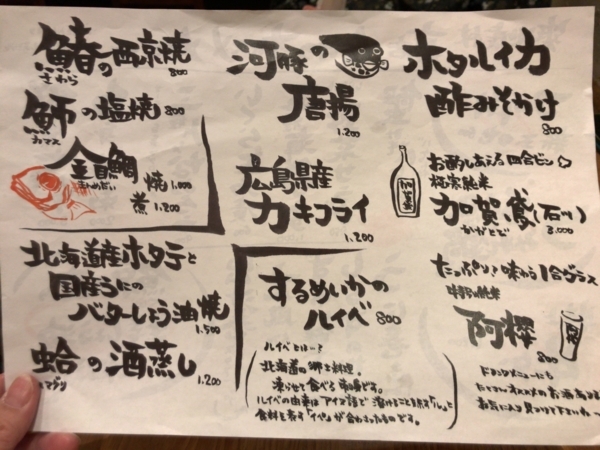 ホタルイカ
酢みそかけ
800
お酌しあえる四合ビン
極寒純米
加賀鳶(石川)
かがとび
3.000
たっぷりと味わう1合グラス
特別純米
阿櫻
800
ドリンクメニューにも
お気に入り見つけて下さいね
河豚の
唐揚
1.200
広島県産
カキフライ
1.200
するめいかの
ルイベ 800
ルイベとは…?
北海道の郷土料理。
凍らせて食べる刺身です。
ルイベの由来はアイヌ語で溶けることを示す「ル」と
食料を表す「イペ」が合わさったものです。
鰆の西京焼
さわら
800
鰤の塩焼 800
金目鯛
きんめだい
焼 1.000
煮 1.200
北海道産ホタテと
国産うにの
バターしょう油焼
1.500
蛤の酒蒸し
ハマグリ
1.200